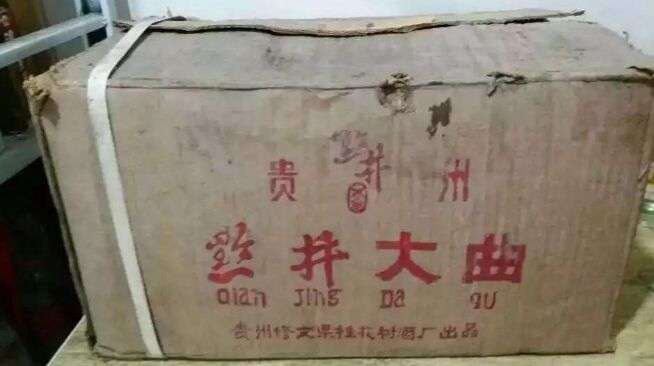 贵 黔井 州
黔井大曲
Qian Jing Da qu
贵州修文果桂花树酒厂出品